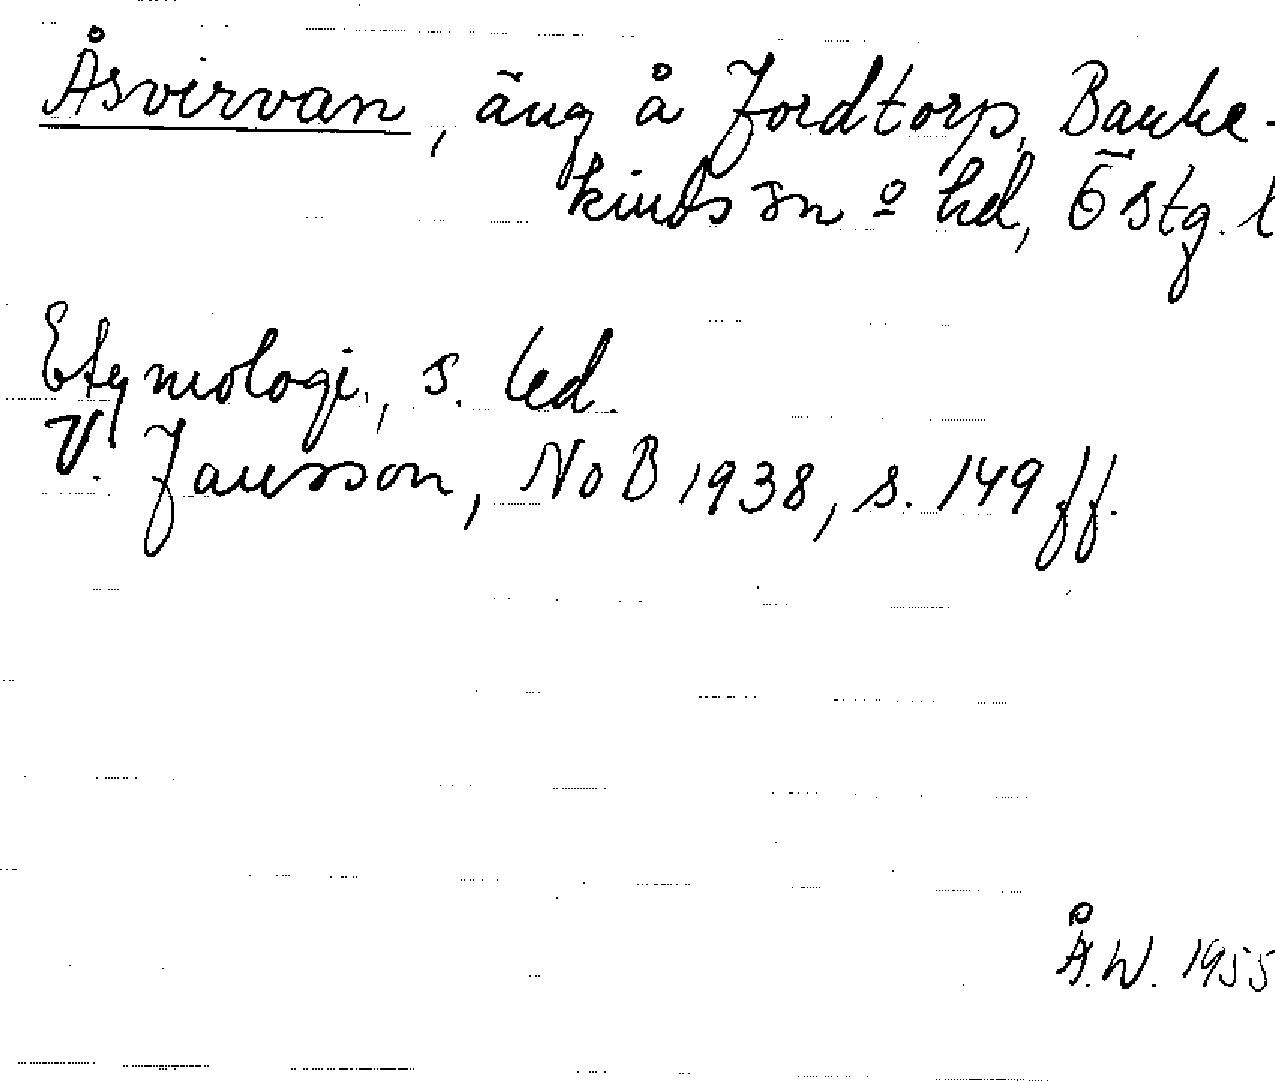 Åsvirvan, äng å Jordtorp, Banke-
kinds sn o hd, Östg. l
Etymologi, s. led.
V. Jansson, NoB 1938, s. 149 ff.
Å.W. 1955